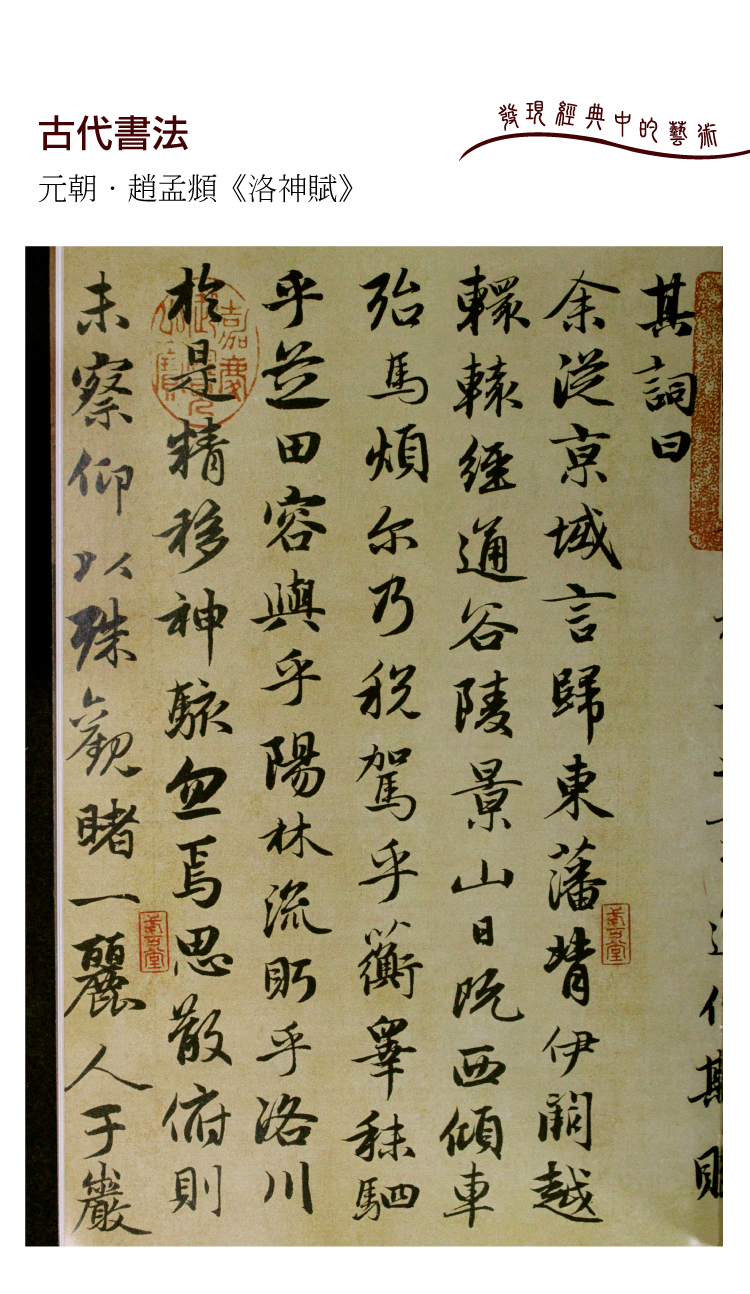 古代書法
發現經典中的藝術
元朝．趙孟頫《洛神賦》
其詞曰
余從京域言歸東藩背伊闕越
轘轅經通谷陵景山日既西傾車
殆馬煩尔乃税駕乎蘅睾秣駟
乎芝田容與乎陽林流眄乎洛川
於是精移神駭忽焉思散俯則
未察仰以殊觀睹一麗人于巖
嘉慶御覽之寶